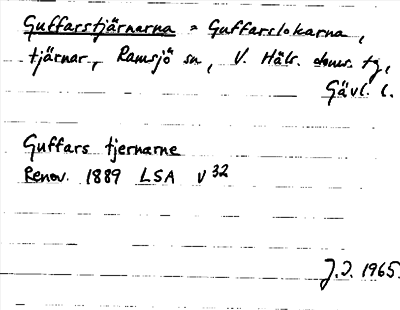 Guffarstjärnarna = Guffarslokarna,
tjärnar, Ramsjö sn, V. Häls. doms. tg,
Gävl. l.
Guffars tjernarne
Renov. 1889 LSA V 32
J.I. 1965.